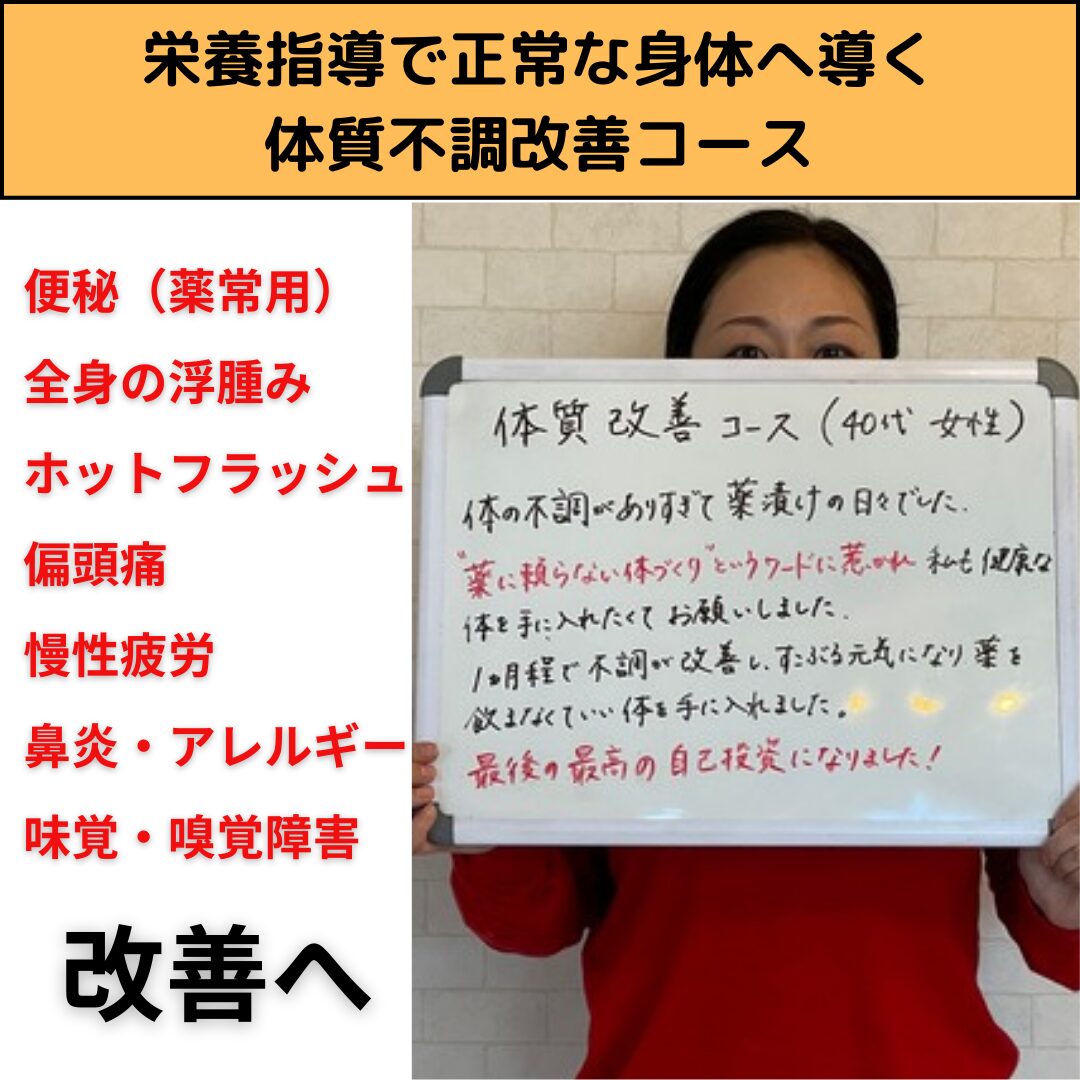 栄養指導で正常な身体へ導く
体質不調改善コース
便秘（薬常用）
全身の浮腫み
ホットフラッシュ
偏頭痛
慢性疲労
鼻炎・アレルギー
味覚・嗅覚障害
改善へ
体質改善コース（40代 女性）
体の不調がありすぎて薬漬けの日々でした.
"薬に頼らない体づくり"というワードに惹かれ 私も健康な
体を手に入れたくて お願いしました.
1ヵ月程で不調が改善し、すこぶる元気になり薬を
飲まなくていい体を手に入れました。
最後の最高の自己投資になりました!